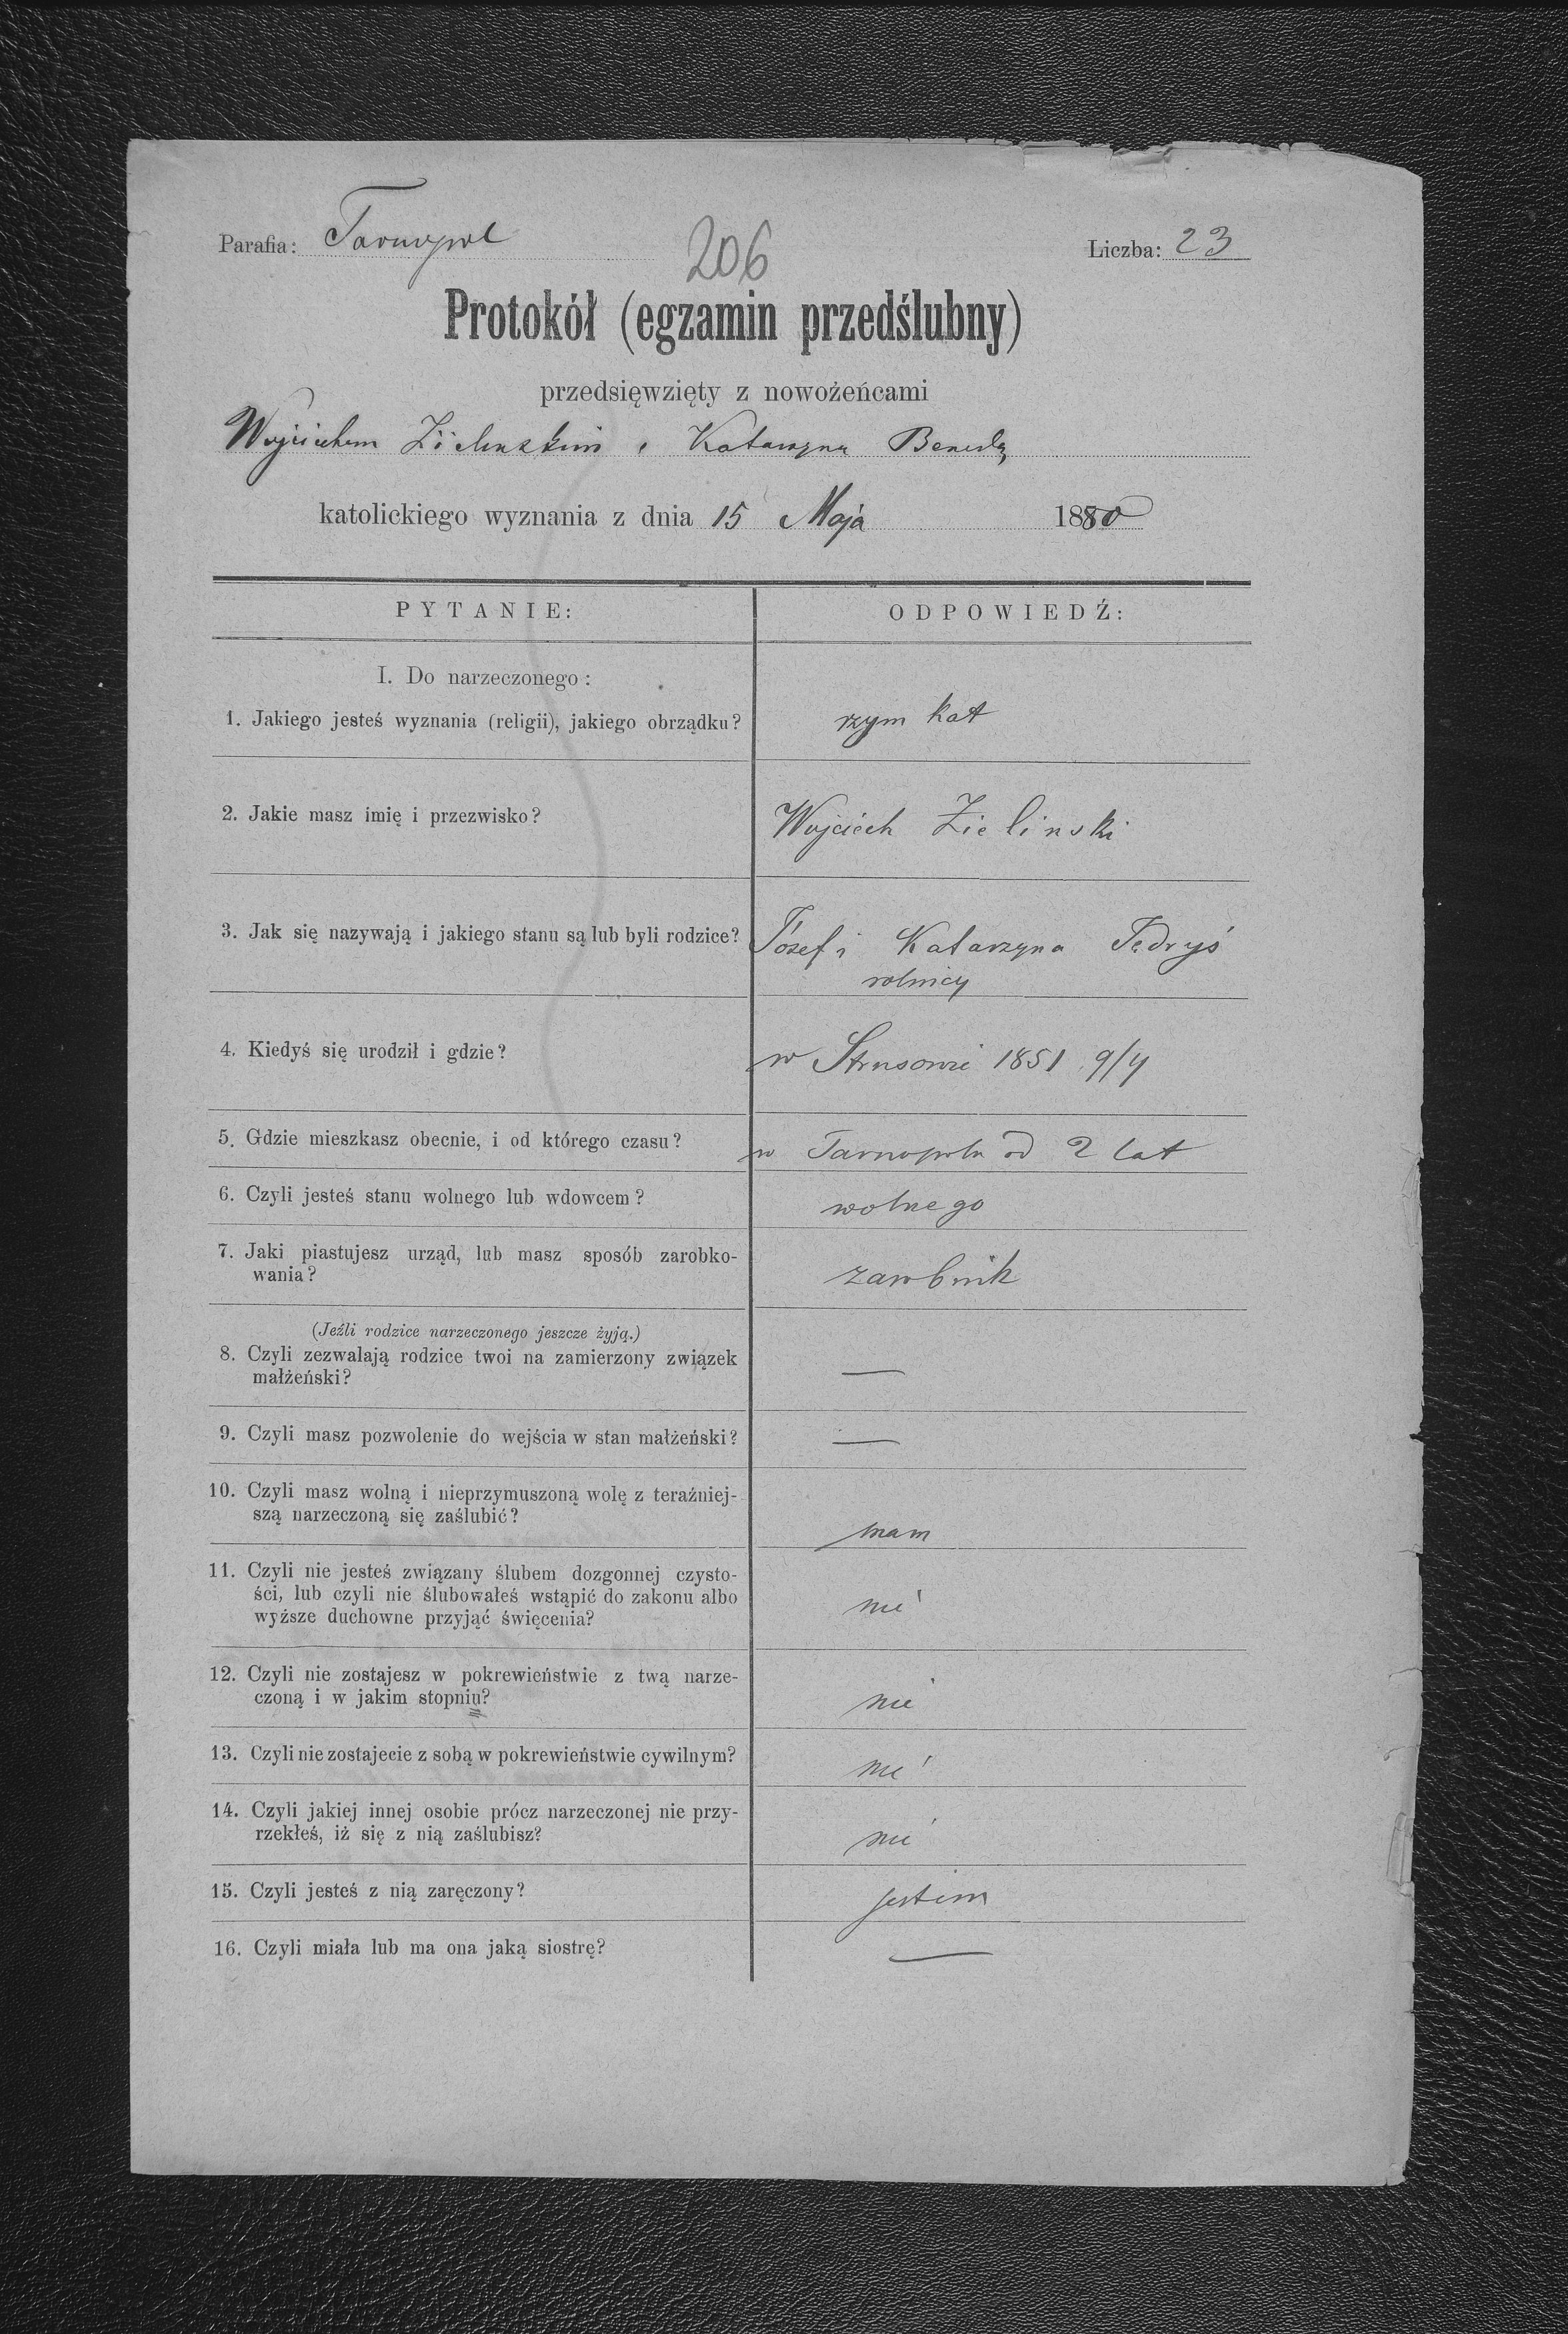 Parafia: Tarnopol
206
Liczba: 23
Protokół (egzamin przedślubny)
przedsięwzięty z nowożeńcami
Wojciechem Zielinskim i Katarzyną
katolickiego wyznania z dnia 15 Maja 1880
PYTANIE:
ODPOWIEDŹ:
I. Do narzeczonego:
1. Jakiego jesteś wyznania (religii), jakiego obrządku?
rzym kat
2. Jakie masz imię i przezwisko?
Wojciech Zielinski
3. Jak się nazywają i jakiego stanu są lub byli rodzice?
Józef i Katarzyna Tedryś
rolnicy
4. Kiedyś się urodził i gdzie?
w Strusowie 1851 9/4
5. Gdzie mieszkasz obecnie, i od którego czasu?
w Tarnopolu od 2 lat
6. Czyli jesteś stanu wolnego lub wdowcem?
wolnego
7. Jaki piastujesz urząd, lub masz sposób zarobko-
wania?
zarobnik
(Jeźli rodzice narzeczonego jeszcze żyją.)
8. Czyli zezwalają rodzice twoi na zamierzony związek
małżeński?
—
9. Czyli masz pozwolenie do wejścia w stan małżeński?
—
10. Czyli masz wolną i nieprzymuszoną wolę z teraźniej-
szą narzeczoną się zaślubić?
mam
11. Czyli nie jesteś związany ślubem dozgonnej czysto-
ści, lub czyli nie ślubowałeś wstąpić do zakonu albo
wyższe duchowne przyjąć święcenia?
nie
12. Czyli nie zostajesz w pokrewieństwie z twą narze-
czoną i w jakim stopniu?
nie
13. Czyli nie zostajecie z sobą w pokrewieństwie cywilnym?
nie
14. Czyli jakiej innej osobie prócz narzeczonej nie przy-
rzekłeś, iż się z nią zaślubisz?
nie
15. Czyli jesteś z nią zaręczony?
jestem
16. Czyli miała lub ma ona jaką siostrę?
—